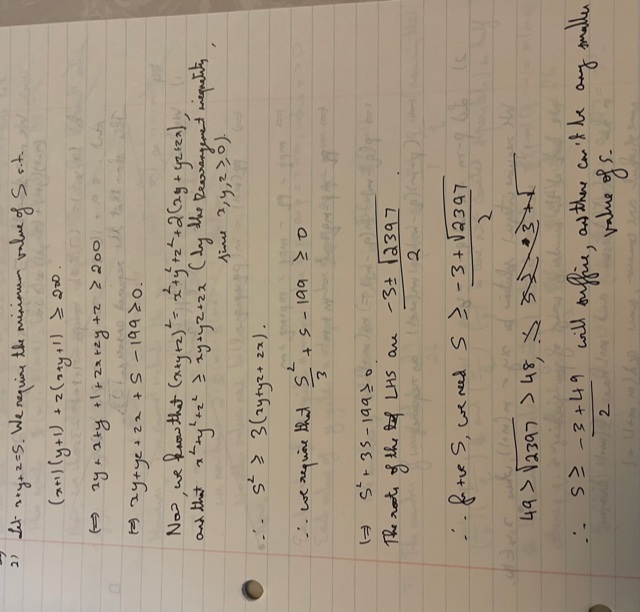 2) Let x+y+z=S. We require the minimum value of S s.t.
(x+1)(y+1) + z(x+y+1) ≥ 200.
⇔ xy + x+y +1 + zx+zy + z ≥ 200
⇔ xy+yz + zx + S - 199 ≥ 0.
Now, we know that (x+y+z)² = x²+y²+z²+2(xy+yz+zx),
and that x²+y²+z² ≥ xy+yz+zx (by the rearrangement inequality,
since x,y,z ≥ 0).
∴ S² ≥ 3(xy+yz+zx).
∴ we require that S²/3 + S - 199 ≥ 0
⇔ S² + 3S - 199 ≥ 0.
The roots of the LHS are (-3 ± √2397)/2.
∴ for +ve S, we need S ≥ (-3+√2397)/2
49 > √2397 > 48,
∴ S ≥ (-3+49)/2 will suffice, and there can't be any smaller
value of S.